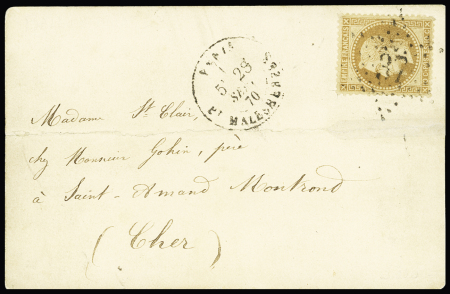 EMPIRE FRANÇAIS
PARIS
5E 28
SEPT
70
Bd MALESHERBES
Madame St Clair,
chez Monsieur Gohin, père
à Saint-Amand Montrond
(Cher)